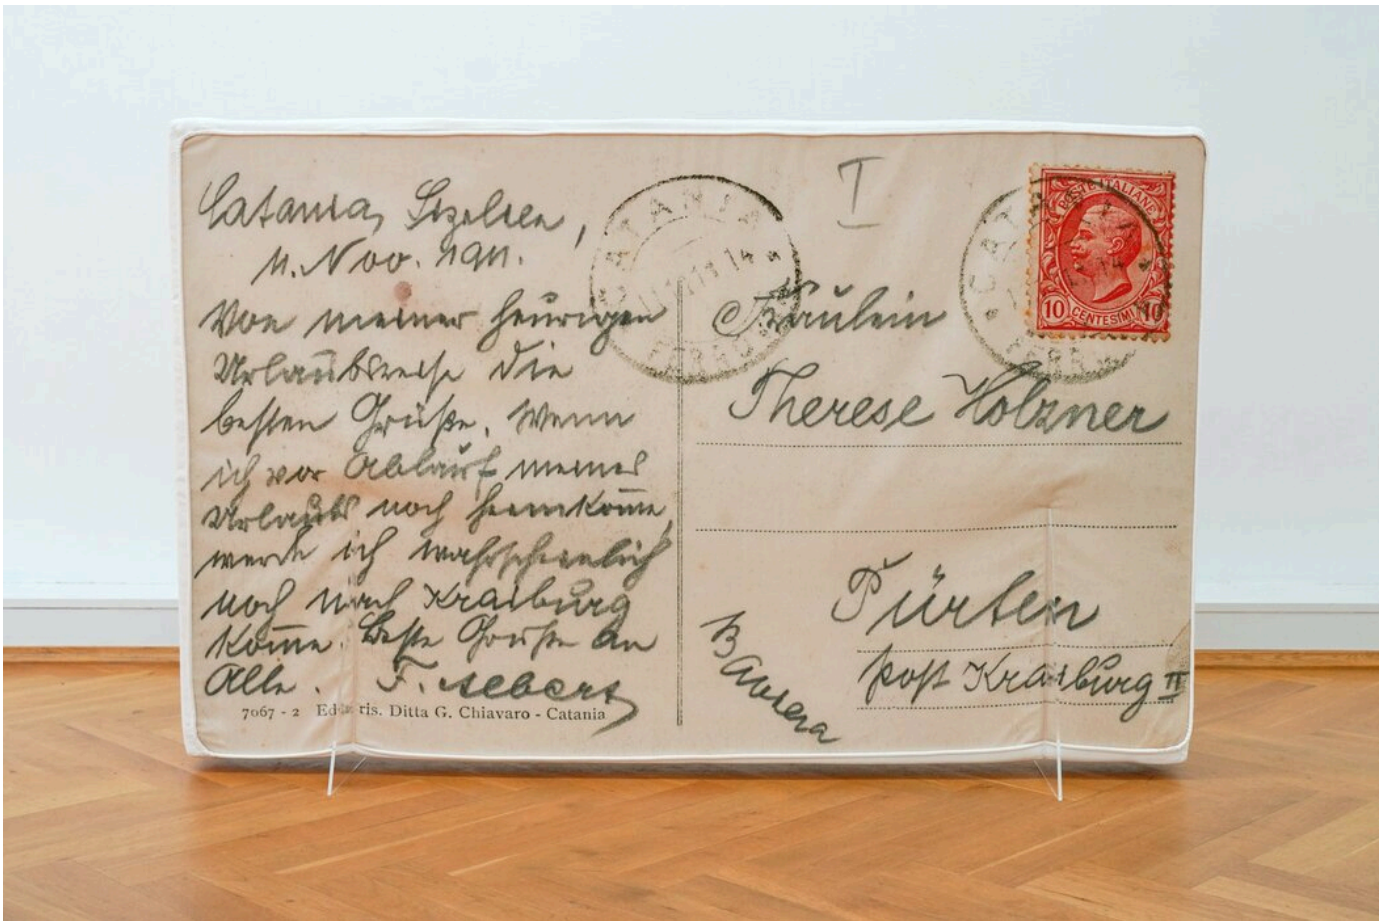 Catania, Sizilien,
11. Nov. 1911.
Von meiner heurigen
Urlaubsreise die
besten Grüße. Wenn
ich vor Ablauf meines
Urlaubs noch heimkom̅e,
werde ich wahrscheinlich
noch nach Kraiburg
kom̅e. Beste Grüße an
Alle. F.
7067 - 2 Ed. ris. Ditta G. Chiavaro - Catania
CATANIA
FERROVIA
I
POSTE ITALIANE
10 CENTESIMI 10
CATANIA
Fräulein
Therese Holzner
Pürten
Post Kraiburg II
Baviera